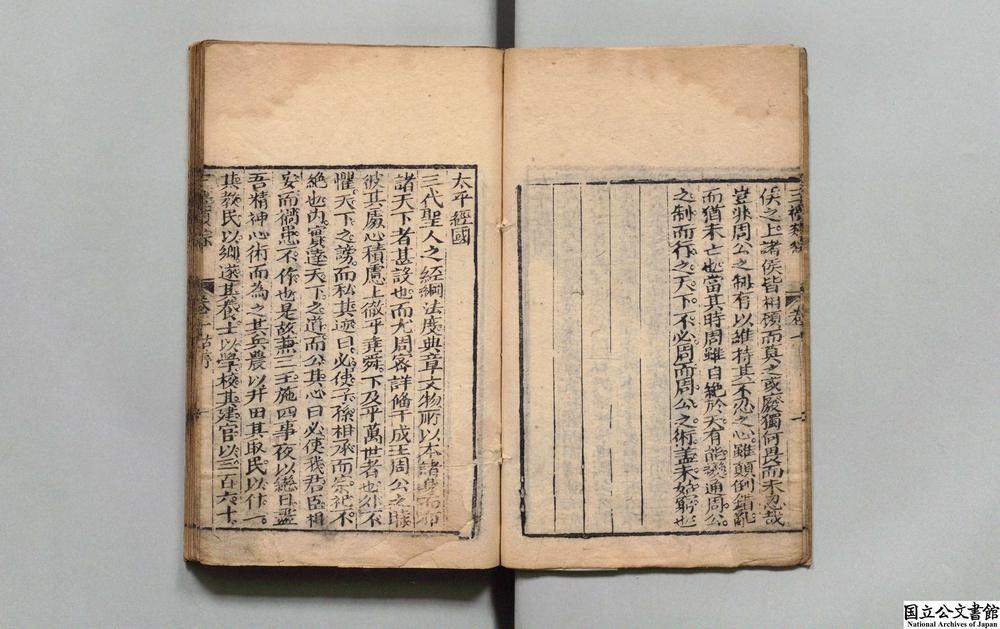 侯之上諸侯皆相顧而莫之或廢獨何畏而未忍哉
豈非周公之制有以維持其不忍之心雖顛倒錯亂
而猶未亡也當其時周雖自絕於天有能變通周公
之制而行之天下不必周而周公之術盖未始窮也
太平經國
三代聖人之經綱法度典章文物所以本諸身而
諸天下者甚設也而尤周密詳俻于成王周公之時
彼其處心積慮上徹乎堯舜下及乎萬世者也外不
懼天下之謗而私其迹曰必使子孫相承而宗祀不
絕也内實達天下之道而公其心曰必使我君臣相
安而禍患不作也是故兼三王施四事夜以繼日盡
吾精神心術而為之其兵農以井田其取民以什一
其教民以鄉遂其養士以學校其建官以三百六十
国立公文書館
National Archives of Japan